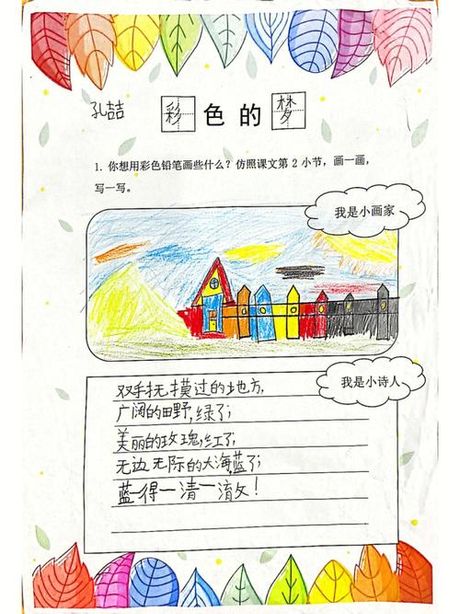 孔喆
彩色的梦
1. 你想用彩色铅笔画些什么？仿照课文第 2 小节，画一画，
写一写。
我是小画家
我是小诗人
双手抚摸过的地方，
广阔的田野，绿了；
美丽的玫瑰，红了；
无边无际的大海，蓝了；
蓝—得—清—澈！